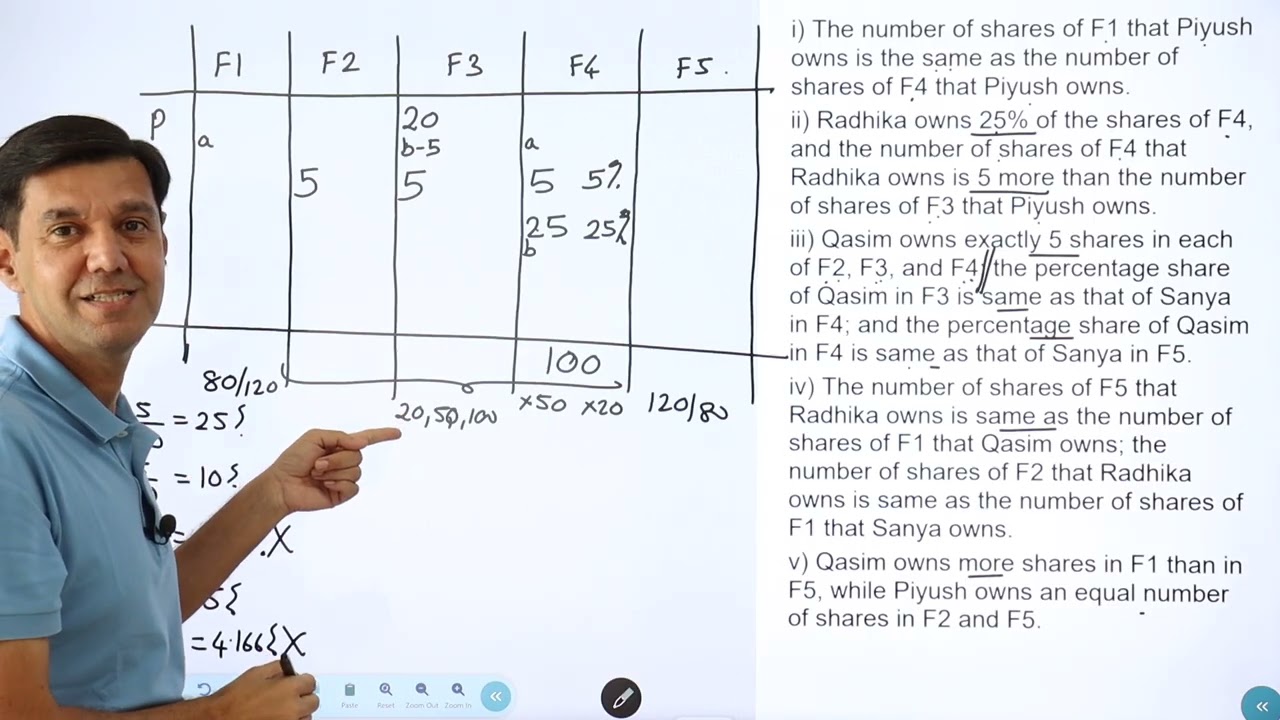 F1 F2 F3 F4 F5
P 20
a b-5 a
5 5 5 5%
25 25%
b
100
80/120 20, 50, 100 ×50 ×20 120/80
= 25%
= 10%
X
= 4.166% X
Paste Reset Zoom Out Zoom In
i) The number of shares of F1 that Piyush
owns is the same as the number of
shares of F4 that Piyush owns.
ii) Radhika owns 25% of the shares of F4,
and the number of shares of F4 that
Radhika owns is 5 more than the number
of shares of F3 that Piyush owns.
iii) Qasim owns exactly 5 shares in each
of F2, F3, and F4; the percentage share
of Qasim in F3 is same as that of Sanya
in F4; and the percentage share of Qasim
in F4 is same as that of Sanya in F5.
iv) The number of shares of F5 that
Radhika owns is same as the number of
shares of F1 that Qasim owns; the
number of shares of F2 that Radhika
owns is same as the number of shares of
F1 that Sanya owns.
v) Qasim owns more shares in F1 than in
F5, while Piyush owns an equal number
of shares in F2 and F5.